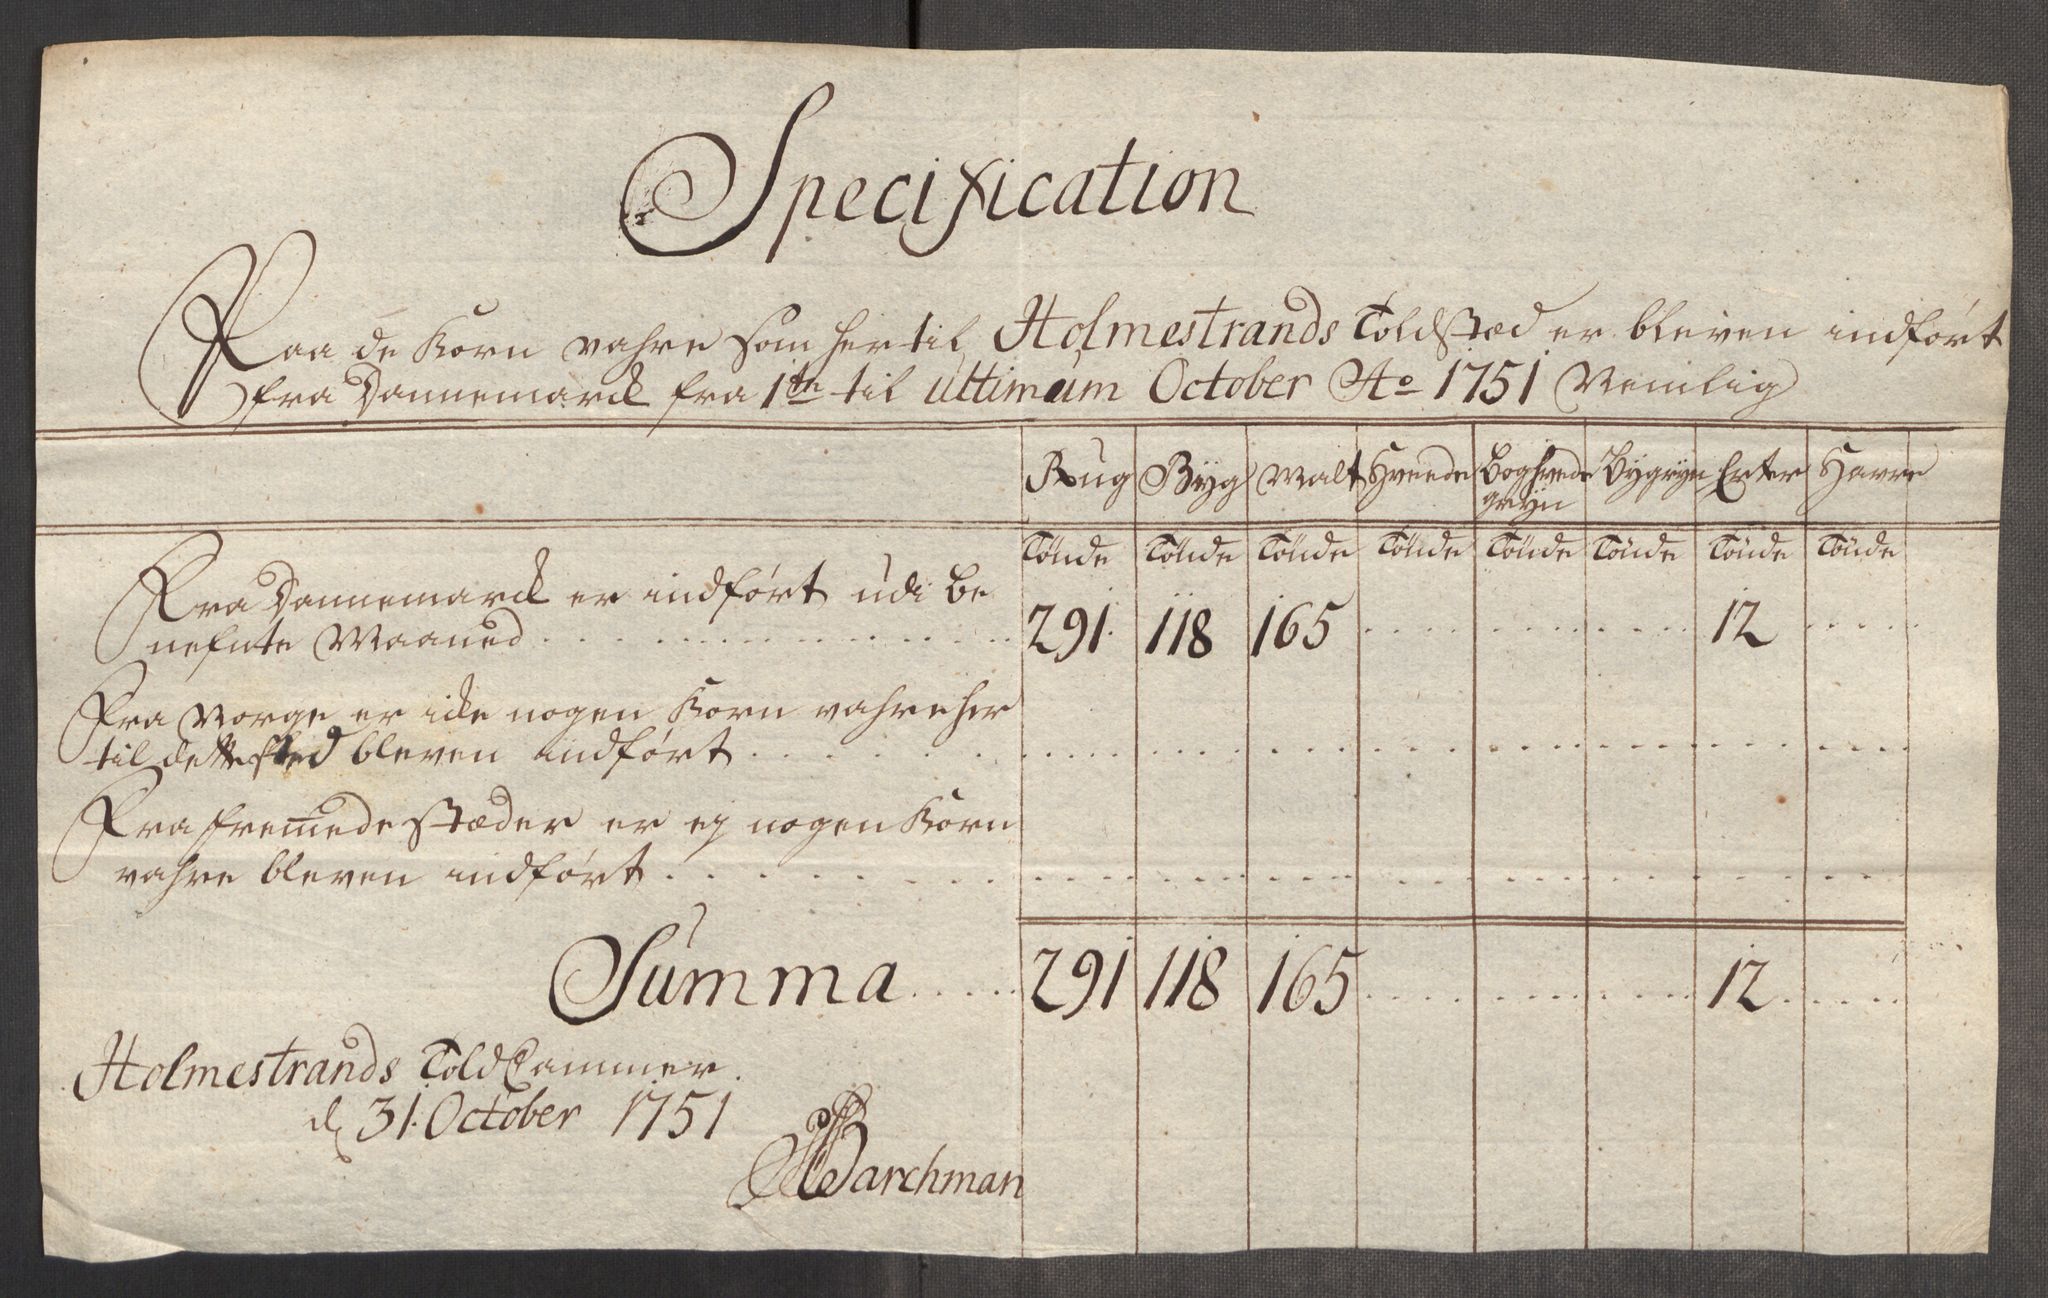 Specification
Paa de Korn vahre som her til Holmestrands Toldstæd er bleven indført
fra Dannemarck fra 1te til ultimum October Ao 1751 Nemlig
Rug Byg Malt Hveede Boghvede Bygryn Erter Havre
gryn
Tønde Tønde Tønde Tønde Tønde Tønde Tønde Tønde
Fra Dannemarck er indført udi be
nefnte Maaned 291. 118 165 12
Fra Norge er icke nogen Korn vahre her
til dette sted bleven indført
Fra fremmede stæder er ej nogen Korn
vahre bleven indført
Summa 291 118 165 12
Holmestrands Told Cammer.
d 31. October 1751
Barchman